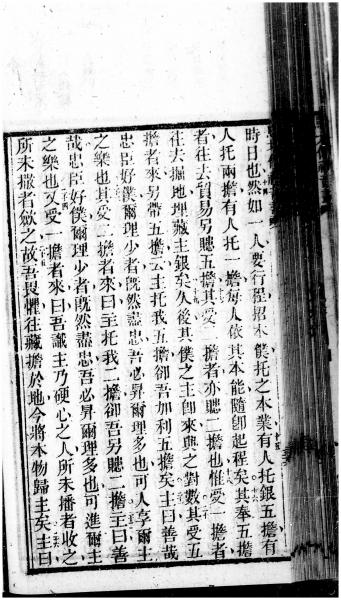 時日也然如一人要行程招本僕托之本業有人托銀五擔有
人托兩擔有人托一擔每人依其本能隨卽起程矣其奉五擔
者往去貿易另賺五擔其受二擔者亦賺二擔也惟受一擔者
往去掘地理藏主銀矣久後其僕之主卽來與之對數其受五
擔者來另帶五擔云主托我五擔卻吾加利五擔矣主曰善哉
忠臣好僕爾理少者旣然盡忠吾必昇爾理多也可人享爾主
之樂也其受二擔者來曰主托我二擔卻吾另賺二擔主曰善
哉忠臣好僕爾理少者旣然盡忠吾必昇爾理多也可進爾主
之樂也又受一擔者來曰吾識主乃硬心之人所未播者收之
所未撒者斂之故吾畏懼往藏擔於地今將本物歸主矣主曰